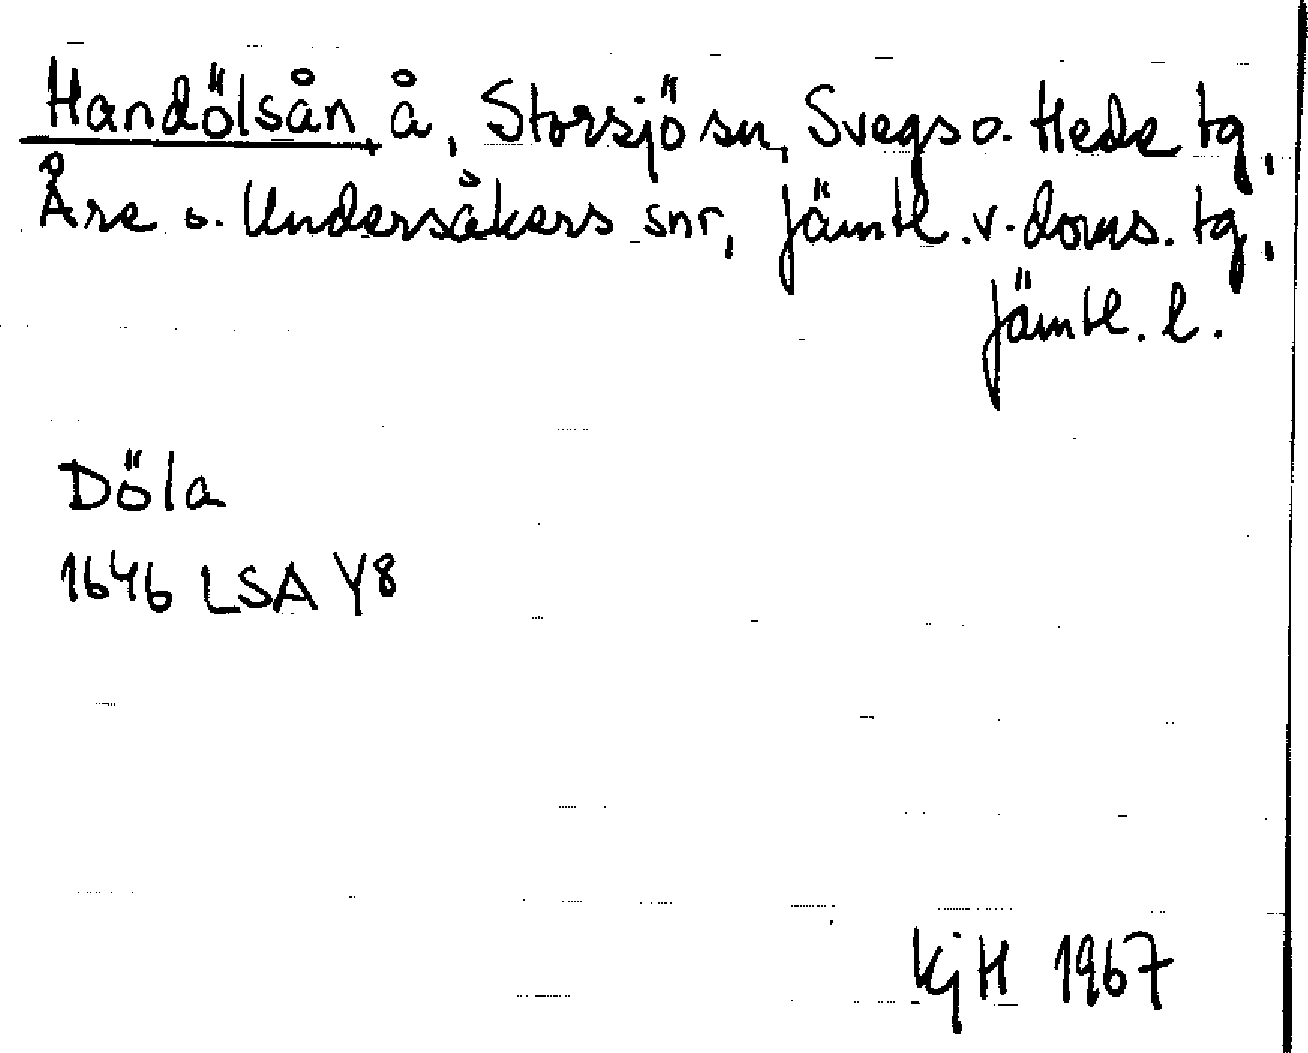 Handölsån, å, Storsjö sn, Svegs o. Heds tg,
Åre o. Undersåkers snr, Jämtl. v. doms. tg,
Jämtl. l.
Döla
1646 LSA Y8
KjH 1967